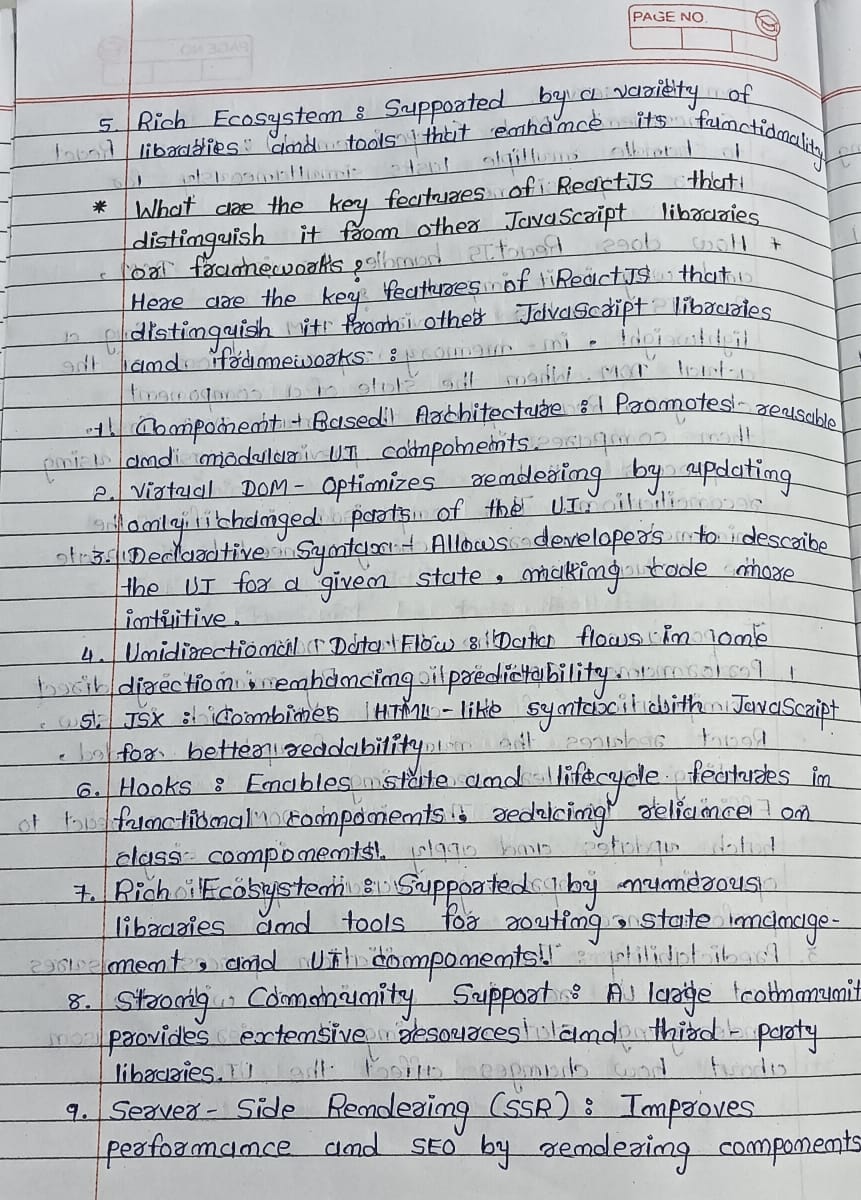 PAGE NO.
5. Rich Ecosystem : Supported by a variety of
libraries and tools that enhance its functionality
* What are the key features of ReactJS that
distinguish it from other JavaScript libraries
or frameworks ?
Here are the key features of ReactJS that
distinguish it from other JavaScript libraries
and frameworks :
1. Component - Based Architecture : Promotes reusable
and modular UI components.
2. Virtual DOM - Optimizes rendering by updating
only changed parts of the UI.
3. Declarative Syntax - Allows developers to describe
the UI for a given state, making code more
intuitive.
4. Unidirectional Data Flow : Data flows in one
direction, enhancing predictability.
5. JSX : Combines HTML - like syntax with JavaScript
for better readability.
6. Hooks : Enables state and lifecycle features in
functional components, reducing reliance on
class components.
7. Rich Ecosystem : Supported by numerous
libraries and tools for routing, state manage-
ment, and UI components.
8. Strong Community Support : A large communit
provides extensive resources and third - party
libraries.
9. Server - Side Rendering (SSR) : Improves
performance and SEO by rendering components